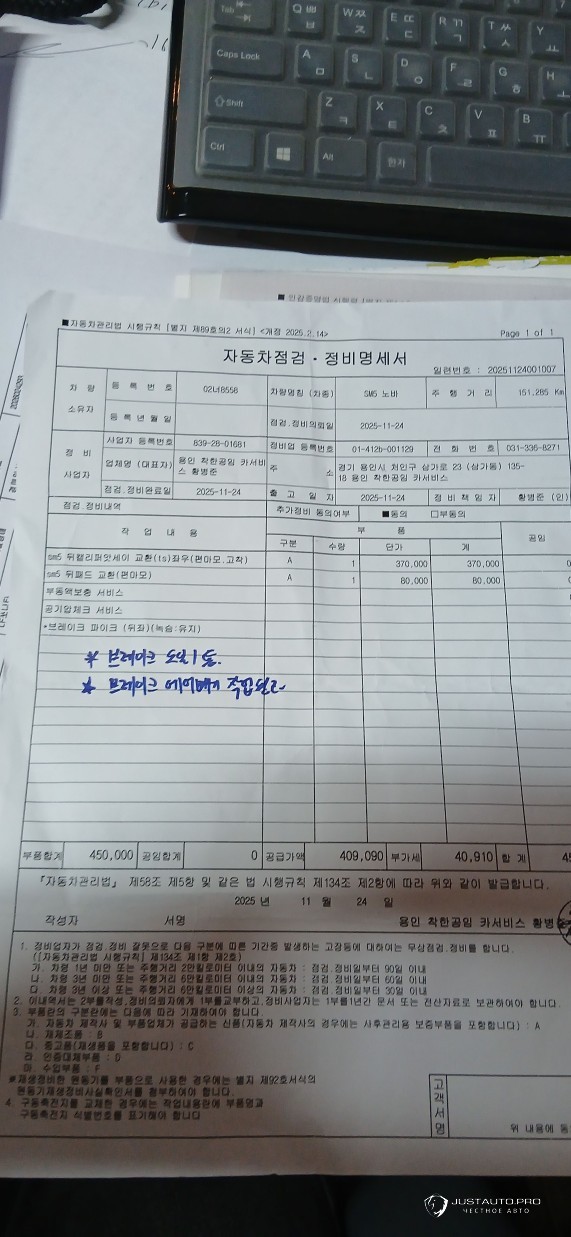 Tab
Q ㅃ ㅂ
W ㅉ ㅈ
E ㄸ ㄷ
R ㄲ ㄱ
T ㅆ ㅅ
Y ㅛ
Caps Lock
A ㅁ
S ㄴ
D ㅇ
F ㄹ
G ㅎ
H ㅗ
Shift
Z ㅋ
X ㅌ
C ㅊ
V ㅍ
B ㅠ
Ctrl
Alt
한자
■자동차관리법 시행규칙 [별지 제89호의2 서식] <개정 2025.2.14>
Page 1 of 1
자동차점검·정비명세서
일련번호 : 20251124001007
차 량 소유자
등 록 번 호 02너8558 차량명칭 (차종) SM5 노바 주 행 거 리 151,285 Km
등 록 년 월 일 점검.정비의뢰일 2025-11-24
정 비 사업자
사업자 등록번호 839-28-01681 정비업 등록번호 01-412b-001129 전 화 번 호 031-336-8271
업체명 (대표자) 용인 착한공임 카서비스 황병준 주 소 경기 용인시 처인구 삼가로 23 (삼가동) 135-18 용인 착한공임 카서비스
점검.정비완료일 2025-11-24 출 고 일 자 2025-11-24 정 비 책 임 자 황병준 (인)
점검.정비내역 추가정비 동의여부 ■동의 □부동의
작 업 내 용 부 품 공임
구분 수량 단가 계
sm5 뒤캘리퍼앗세이 교환(ts)좌우(편마모.고착) A 1 370,000 370,000
sm5 뒤패드 교환(편마모) A 1 80,000 80,000
부동액보충 서비스
공기압체크 서비스
*브레이크 파이크 (뒤좌)(녹슴:유지)
* 브레이크 오일1통.
* 브레이크 에어빼기 작업
부품합계 450,000 공임합계 0 공급가액 409,090 부가세 40,910 합 계
「자동차관리법」 제58조 제5항 및 같은 법 시행규칙 제134조 제2항에 따라 위와 같이 발급합니다.
2025 년 11 월 24 일
작성자 서명 용인 착한공임 카서비스 황병준
1. 정비업자가 점검.정비 잘못으로 다음 구분에 따른 기간중 발생하는 고장등에 대하여는 무상점검.정비를 합니다.
([자동차관리법 시행규칙] 제134조 제1항 제2호)
가. 차령 1년 미만 또는 주행거리 2만킬로미터 이내의 자동차 : 점검.정비일부터 90일 이내
나. 차령 3년 미만 또는 주행거리 6만킬로미터 이내의 자동차 : 점검.정비일부터 60일 이내
다. 차령 3년 이상 또는 주행거리 6만킬로미터 이상의 자동차 : 점검.정비일부터 30일 이내
2. 이내역서는 2부를작성,정비의뢰자에게 1부를교부하고,정비사업자는 1부를1년간 문서 또는 전산자료로 보관하여야 합니다.
3. 부품란의 구분란에는 다음에 따라 기재하여야 합니다.
가. 자동차 제작사 및 부품업체가 공급하는 신품(자동차 제작사의 경우에는 사후관리용 보증부품을 포함합니다) : A
나. 재제조품 : B
다. 중고품(재생품을 포함합니다) : C
라. 인증대체부품 : D
마. 수입부품 : F
※재생정비한 원동기를 부품으로 사용한 경우에는 별지 제92호서식의
원동기재생정비사실확인서를 첨부하여야 합니다.
4. 구동축전지를 교체한 경우에는 작업내용란에 부품명과
구동축전지 식별번호를 표기해야 합니다
고객서명
위 내용에 동
JUSTAUTO.PRO
ЧЕСТНОЕ АВТО